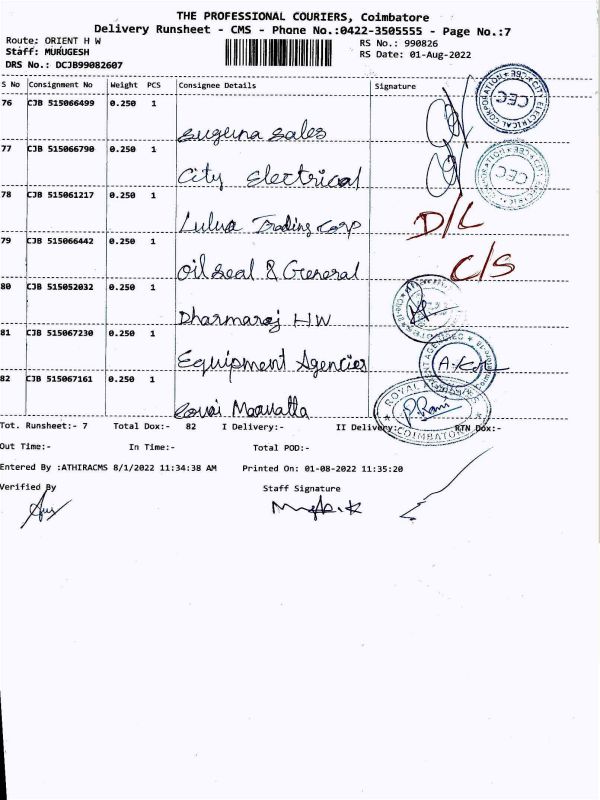 THE PROFESSIONAL COURIERS, Coimbatore
Delivery Runsheet - CMS - Phone No.:0422-3505555 - Page No.:7
Route: ORIENT H W
RS No.: 990826
Staff: MURUGESH
RS Date: 01-Aug-2022
DRS No.: DCJB99082607
S No Consignment No Weight PCS Consignee Details Signature
76 CJB 515066499 0.250 1
Suguna Sales
CITY ELECTRICAL CORPORATION CBE
CEC
77 CJB 515066790 0.250 1
City Electrical
CEC
78 CJB 515061217 0.250 1
Trading Corp
D/L
79 CJB 515066442 0.250 1
Oil Seal & General
C/S
80 CJB 515052032 0.250 1
Dharmaraj HW
81 CJB 515067230 0.250 1
Equipment Agencies
82 CJB 515067161 0.250 1
ROYAL
COIMBATORE
Tot. Runsheet:- 7 Total Dox:- 82 I Delivery:- II Delivery:- RTN Dox:-
Out Time:- In Time:- Total POD:-
Entered By :ATHIRACMS 8/1/2022 11:34:38 AM Printed On: 01-08-2022 11:35:20
Verified By Staff Signature